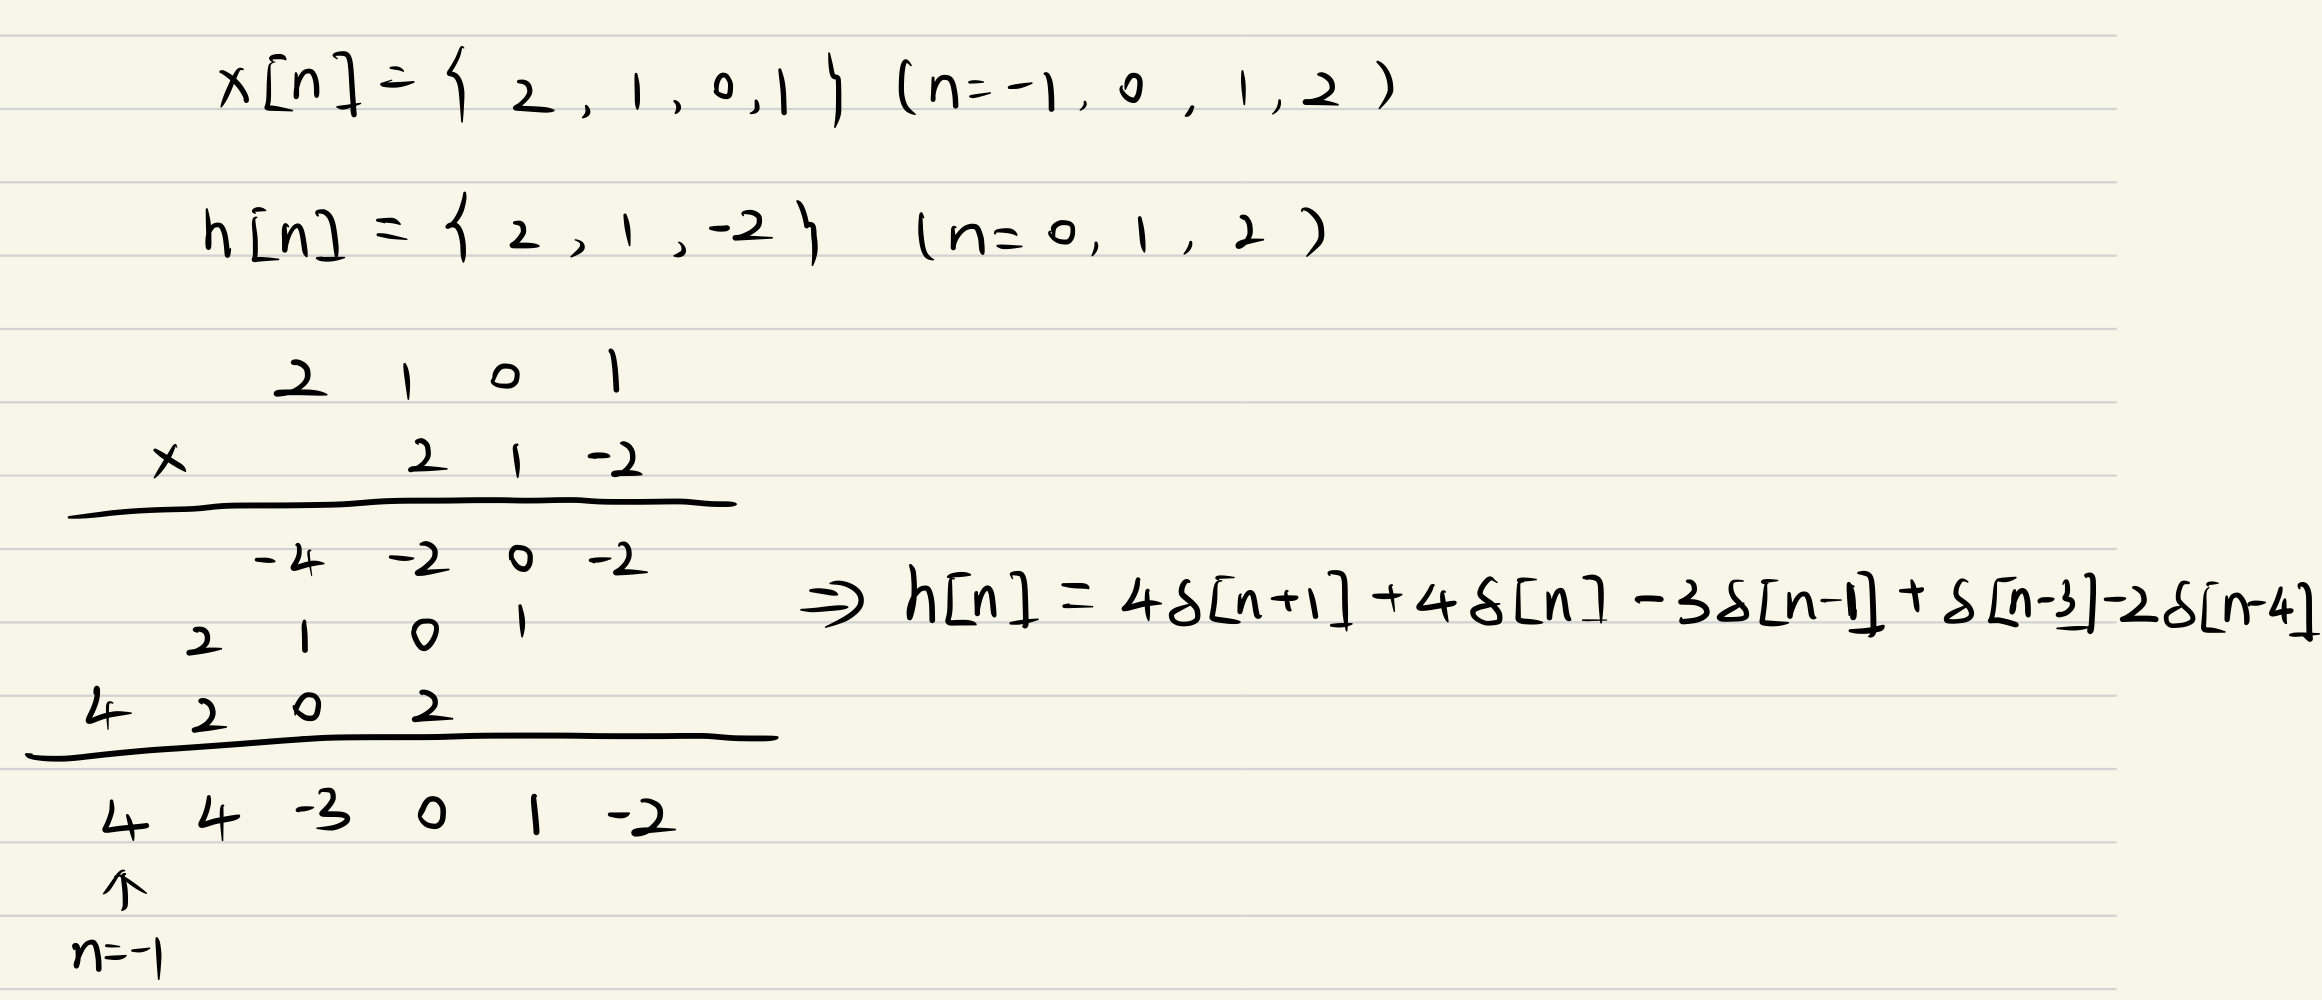 x[n] = { 2 , 1 , 0 , 1 } (n=-1, 0 , 1 , 2 )
h[n] = { 2 , 1 , -2 } (n= 0, 1 , 2 )
2 1 0 1
× 2 1 -2
-4 -2 0 -2
2 1 0 1
4 2 0 2
4 4 -3 0 1 -2
↑
n=-1
⇒ h[n] = 4δ[n+1] + 4δ[n] - 3δ[n-1] + δ[n-3] - 2δ[n-4]